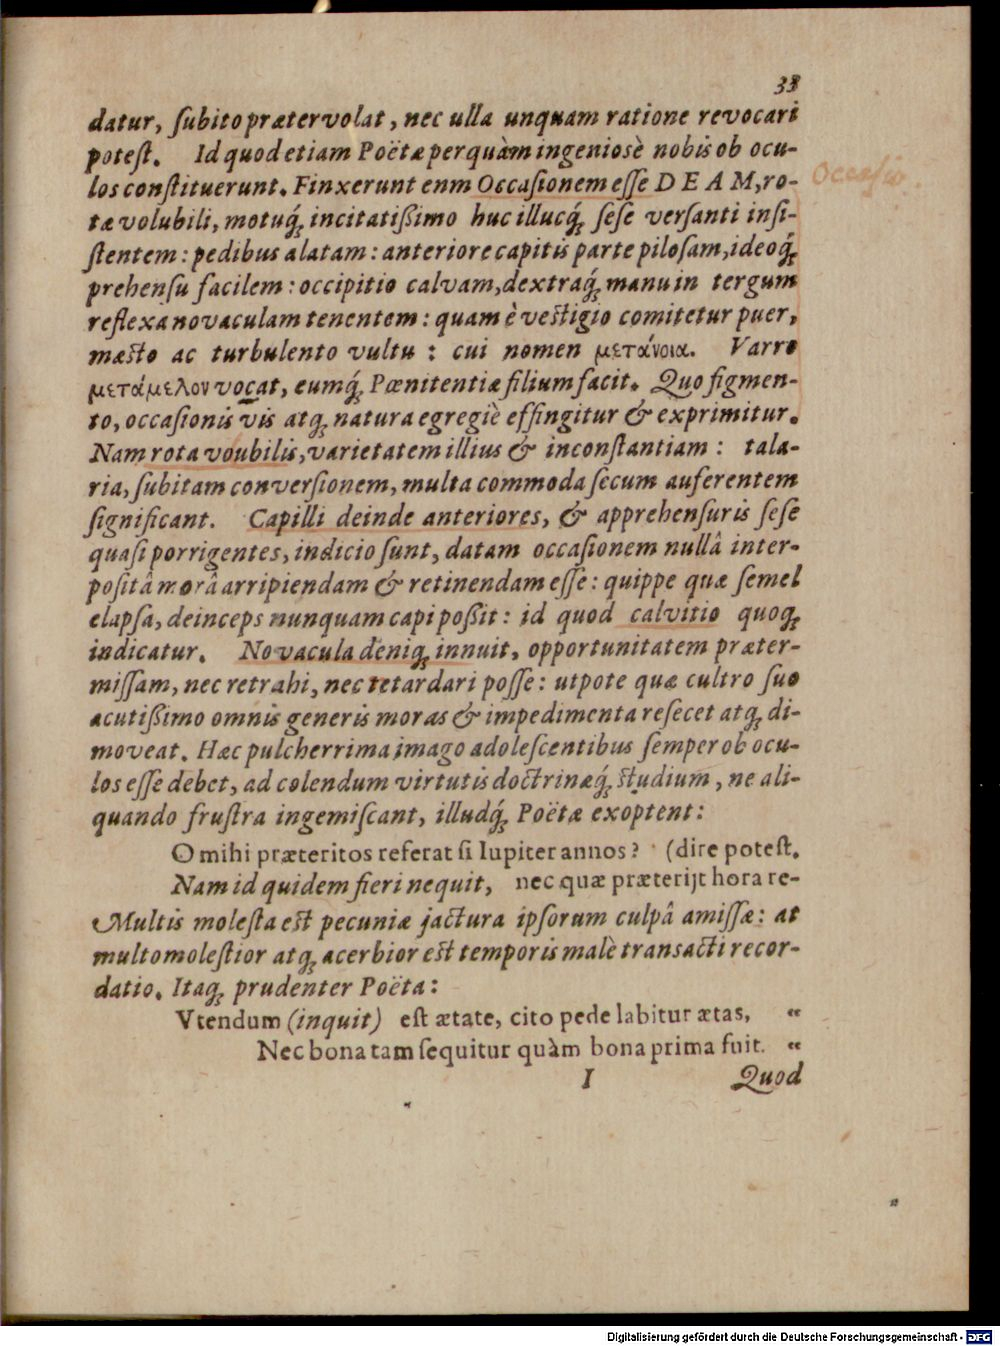 33
datur, ſubito prætervolat, nec ulla unquam ratione revocari
poteſt. Id quod etiam Poëtæ perquàm ingeniosè nobis ob ocu-
los conſtituerunt. Finxerunt enm Occaſionem eſſe DEAM, ro-
tæ volubili, motuq́; incitatißimo huc illucq́; ſeſe verſanti inſi-
ſtentem: pedibus alatam: anteriore capitis parte piloſam, ideoq́;
prehenſu facilem: occipitio calvam, dextraq́; manu in tergum
reflexa novaculam tenentem: quam è veſtigio comitetur puer,
mæſto ac turbulento vultu: cui nomen μετάνοια. Varro
μετάμελον vocat, eumq́; Pœnitentiæ filium facit. Quo figmen-
to, occaſionis vis atq; natura egregiè effingitur & exprimitur.
Nam rota voubilis, varietatem illius & inconſtantiam: tala-
ria, ſubitam converſionem, multa commoda ſecum auferentem
ſignificant. Capilli deinde anteriores, & apprehenſuris ſeſe
quaſi porrigentes, indicio ſunt, datam occaſionem nullâ inter-
poſitâ morâ arripiendam & retinendam eſſe: quippe quæ ſemel
elapſa, deinceps nunquam capi poßit: id quod calvitio quoq;
indicatur. Novacula deniq; innuit, opportunitatem præter-
miſſam, nec retrahi, nec retardari poſſe: utpote quæ cultro ſuo
acutißimo omnis generis moras & impedimenta reſecet atq; di-
moveat. Hæc pulcherrima imago adoleſcentibus ſemper ob ocu-
los eſſe debet, ad colendum virtutis doctrinæq́; ſtudium, ne ali-
quando fruſtra ingemiſcant, illudq́; Poëtæ exoptent:
O mihi præteritos referat ſi Iupiter annos? (dire poteſt.
Nam id quidem fieri nequit, nec quæ præterijt hora re-
Multis moleſta eſt pecuniæ jactura ipſorum culpâ amiſſæ: at
multo moleſtior atq; acerbior eſt temporis malè transacti recor-
datio. Itaq; prudenter Poëta:
Vtendum (inquit) eſt ætate, cito pede labitur ætas, “
Nec bona tam ſequitur quàm bona prima fuit. “
I Quod
Occaſio
Digitalisierung gefördert durch die Deutsche Forschungsgemeinschaft - DFG